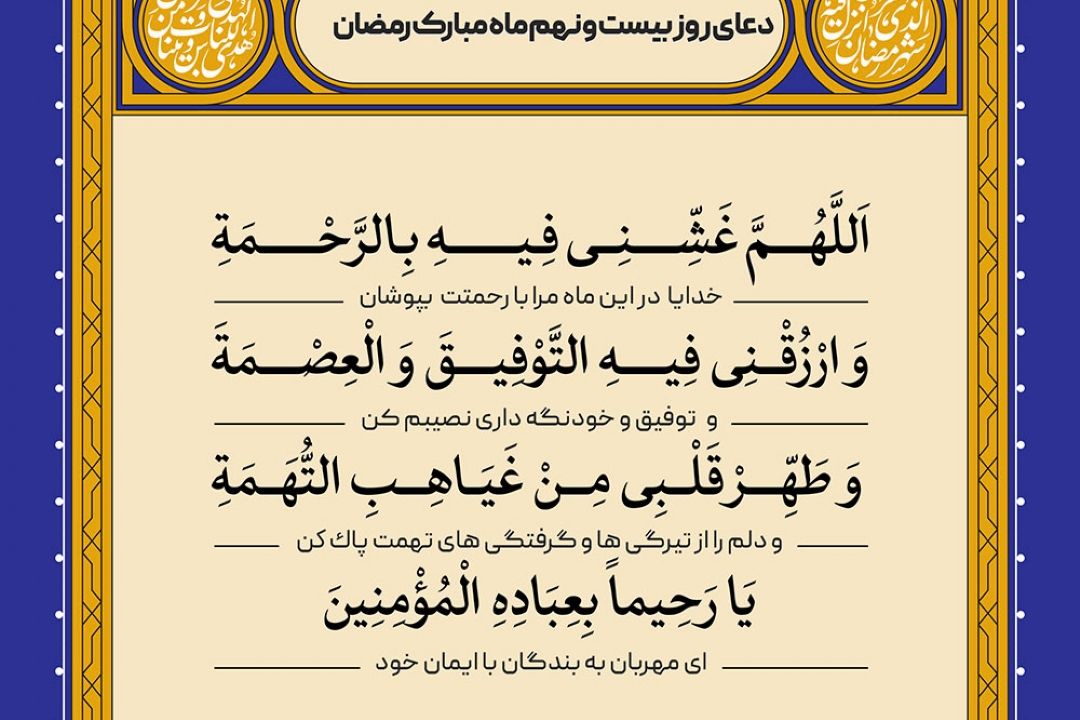 دعای روز بیست و نهم ماه مبارک رمضان
اَللَّهُمَّ غَشِّنِی فِیهِ بِالرَّحْمَةِ
خدایا در این ماه مرا با رحمتت بپوشان
وَ ارْزُقْنِی فِیهِ التَّوْفِیقَ وَ الْعِصْمَةَ
و توفیق و خودنگه داری نصیبم کن
وَ طَهِّرْ قَلْبِی مِنْ غَیَاهِبِ التُّهَمَةِ
و دلم را از تیرگی ها و گرفتگی های تهمت پاك کن
یَا رَحِیماً بِعِبَادِهِ الْمُؤْمِنِینَ
ای مهربان به بندگان با ایمان خود